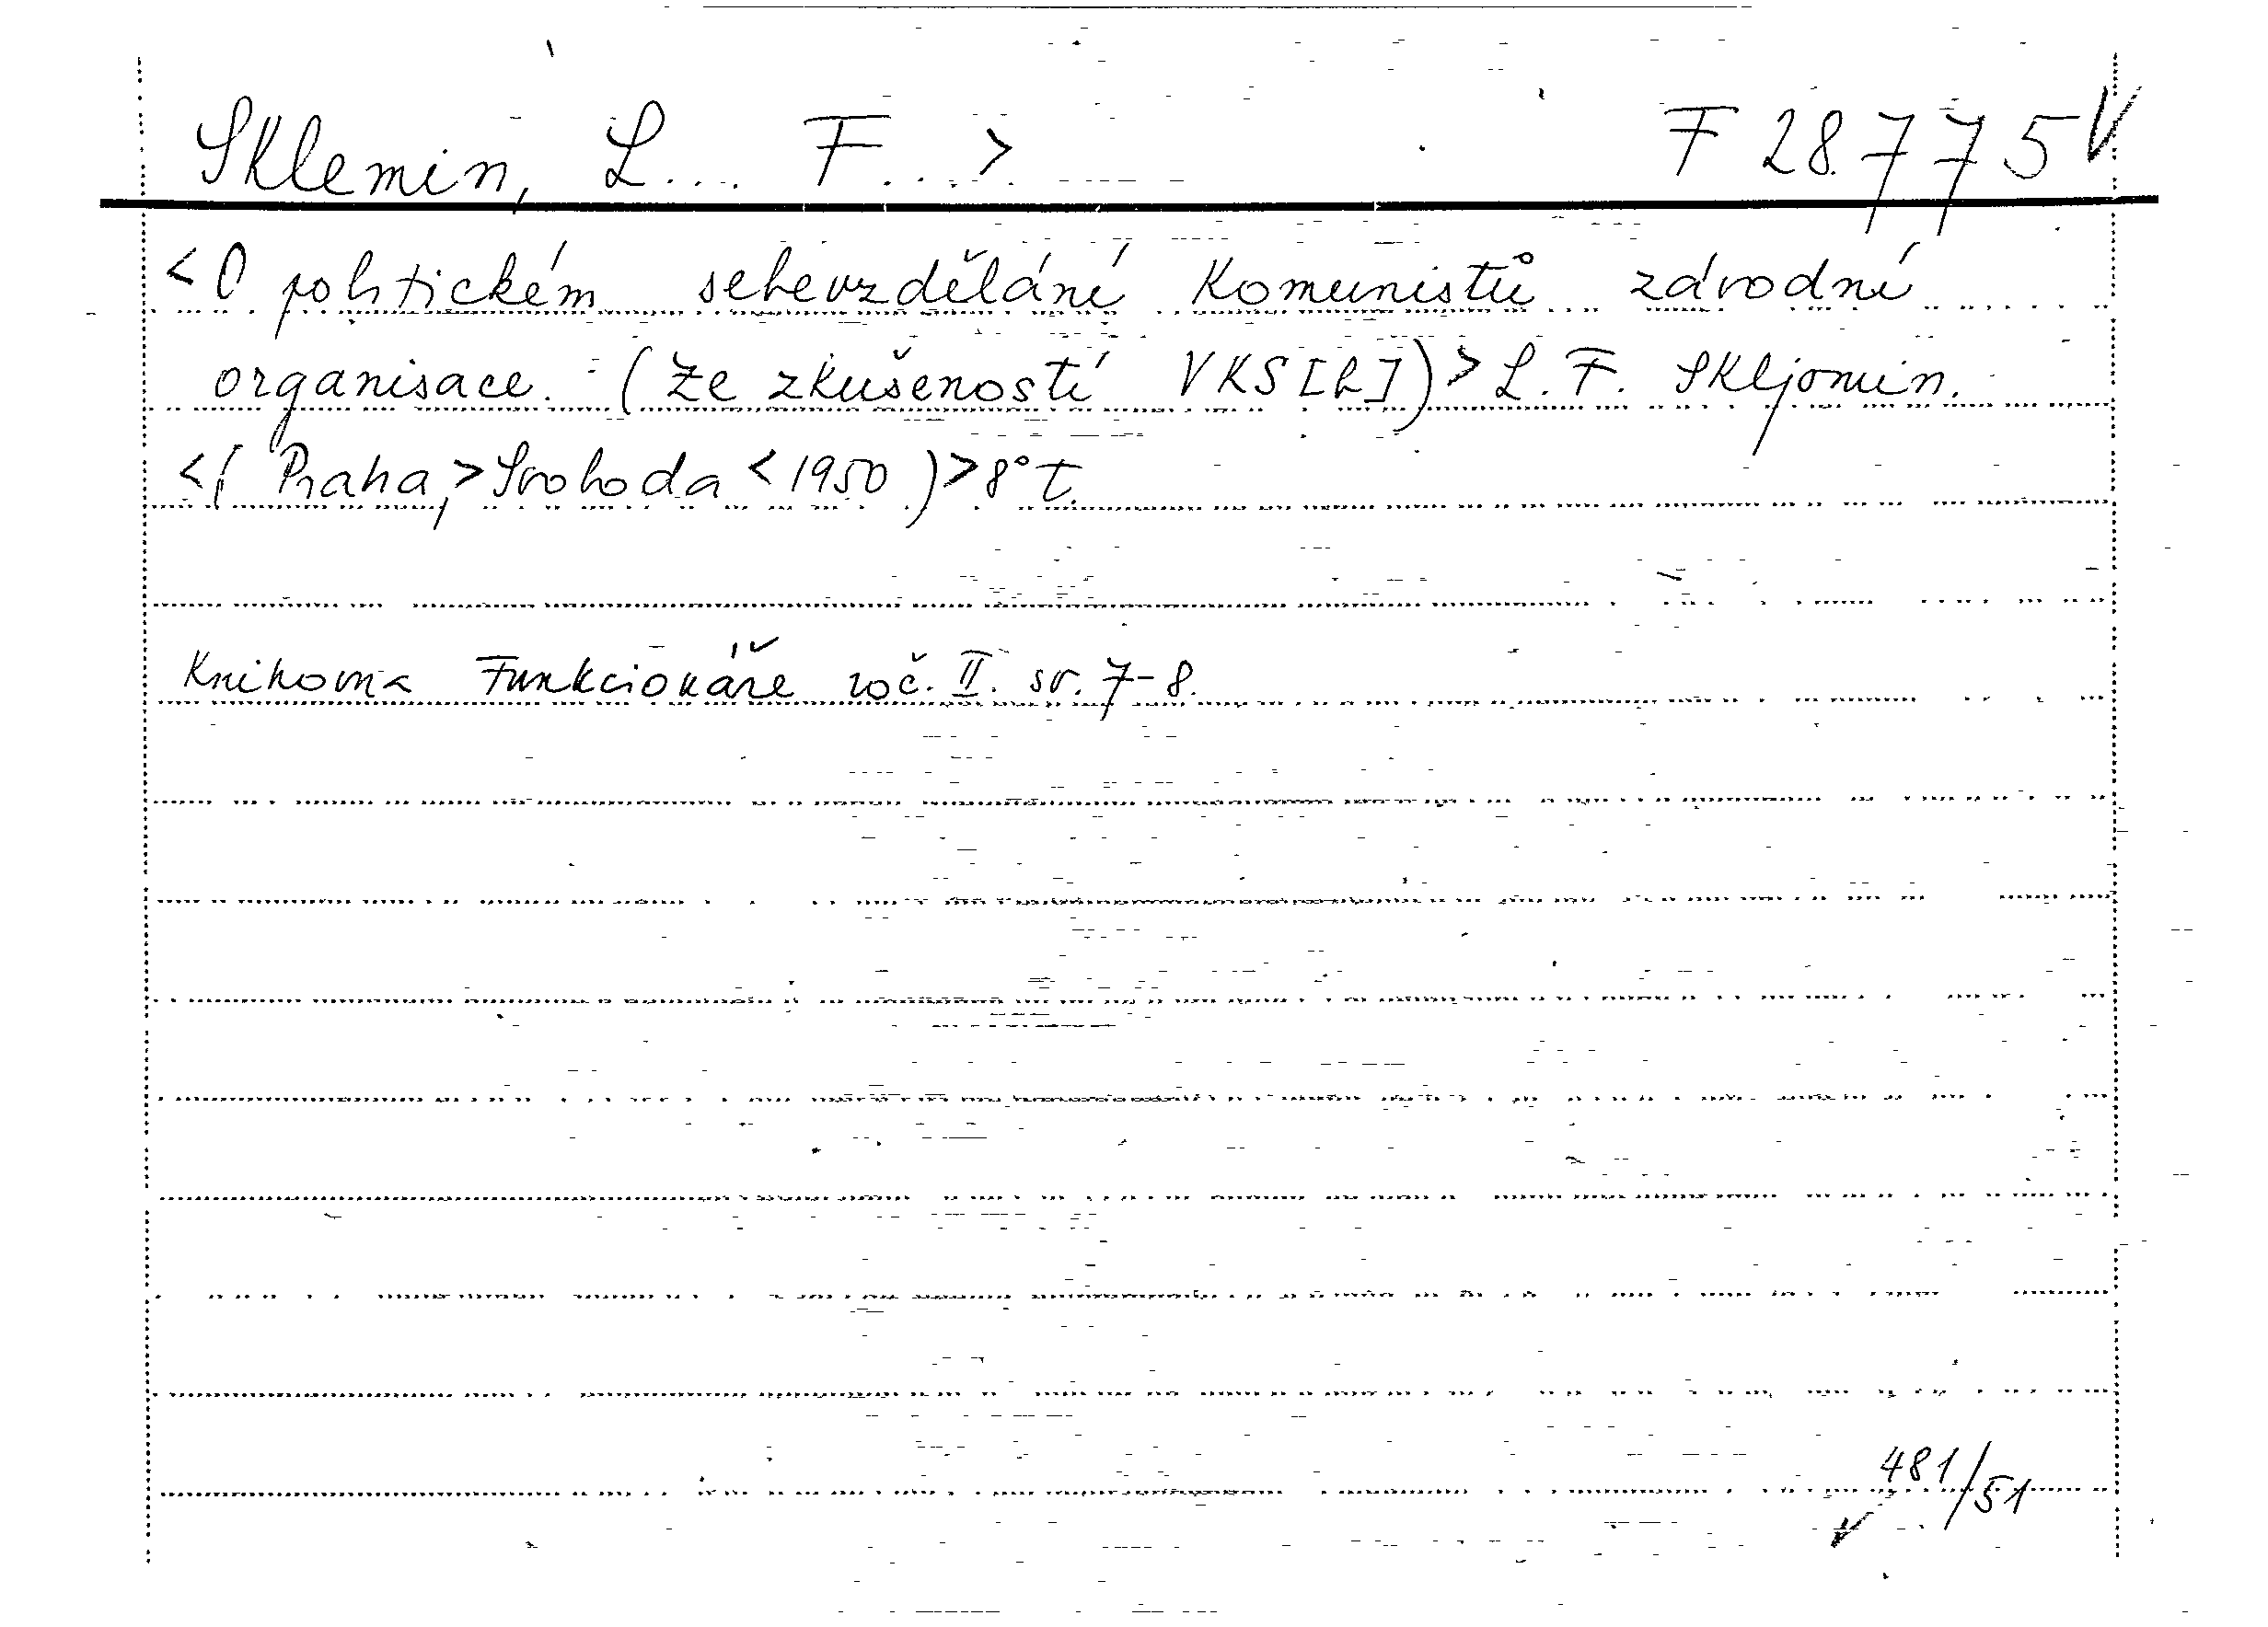 Sklemin, L... F...>
F 28.775 V
<O politickém sebevzdělání komunistů závodní
organisace. (Ze zkušeností VKS[b])> L. F. Skljomin.
<( Praha,> Svoboda <1950)> 8° t.
Knihovna Funkcionáře roč. II. sv. 7-8.
481/51